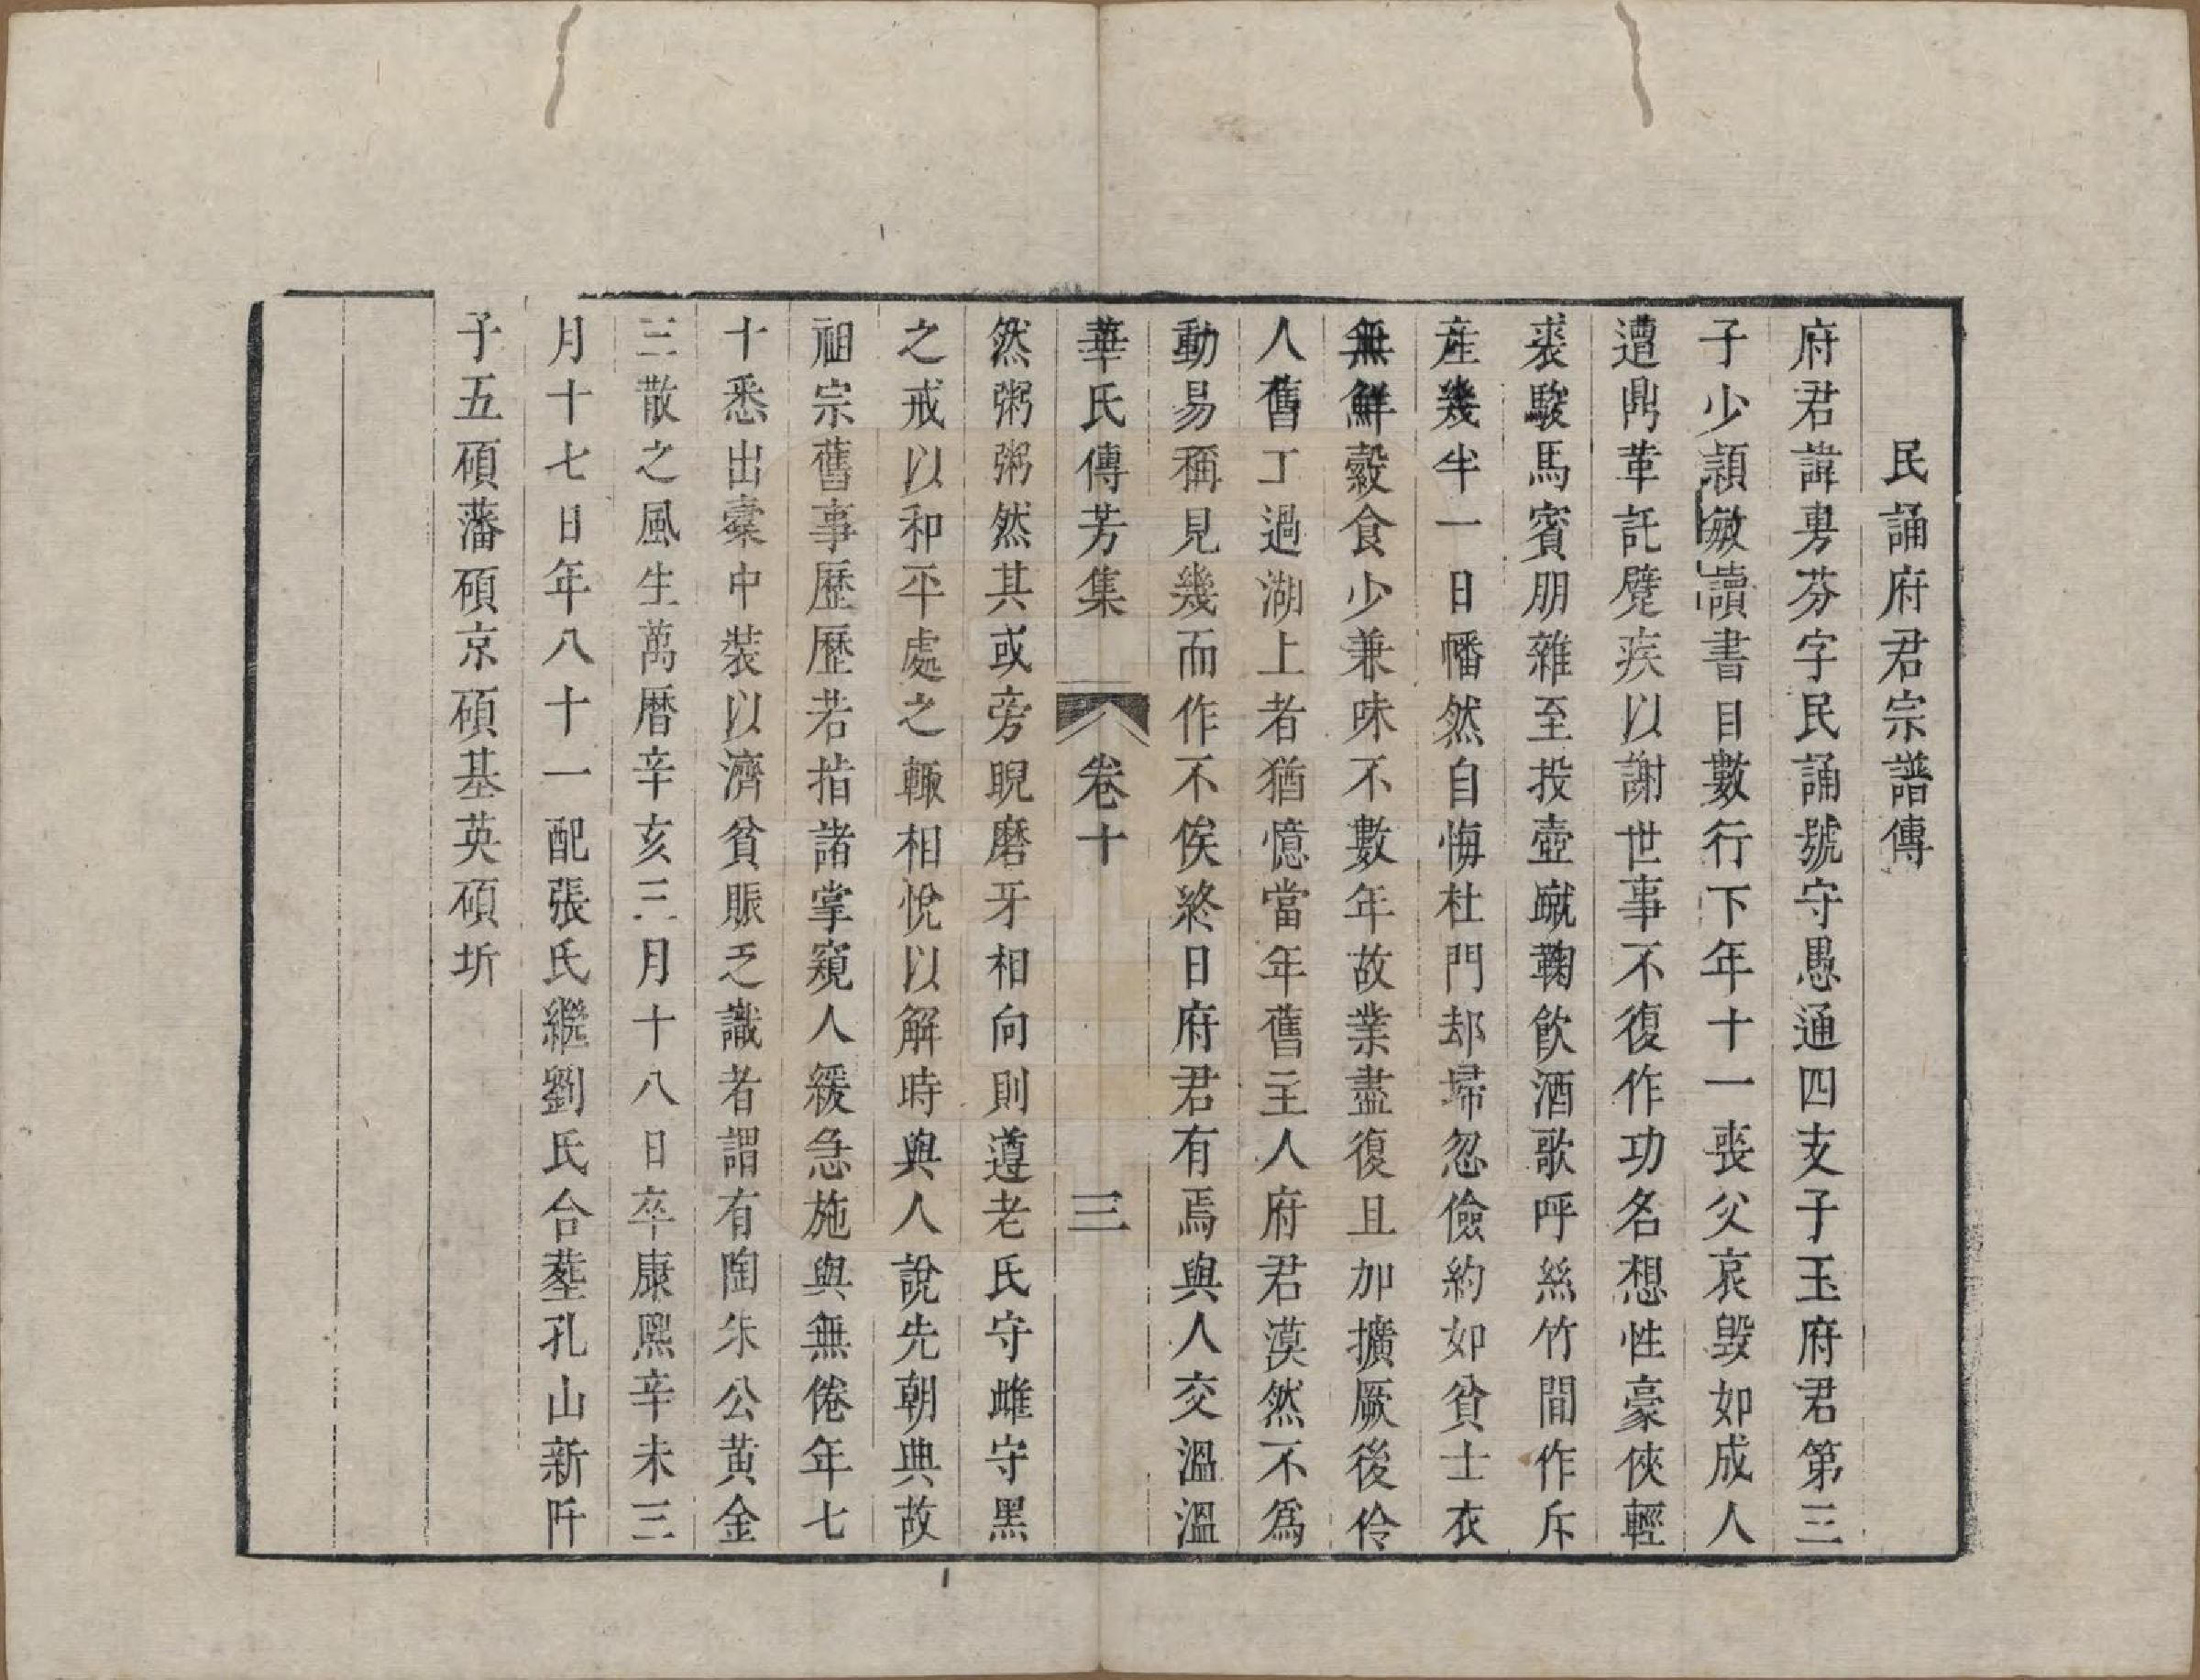 民誦府君宗譜傳
府君諱旉芬字民誦號守愚通四支子玉府君第三
子少穎敏讀書目數行下年十一喪父哀毀如成人
遭鼎革託躄疾以謝世事不復作功名想性豪俠輕
裘駿馬賓朋雜至投壺蹴鞠飲酒歌呼絲竹間作斥
産幾半一日幡然自悔杜門却埽忍儉約如貧士衣
無鮮縠食少兼味不數年故業盡復且加擴厥後伶
人舊丁過湖上者猶憶當年舊主人府君漠然不爲
動易稱見幾而作不俟終日府君有焉與人交溫溫
華氏傳芳集 卷十 三
然粥粥然其或旁睨磨牙相向則遵老氏守雌守黑
之戒以和平處之輒相悅以解時與人說先朝典故
祖宗舊事歷歷若指諸掌窺人緩急施與無倦年七
十悉出橐中裝以濟貧賑乏識者謂有陶朱公黃金
三散之風生萬曆辛亥三月十八日卒康熙辛未三
月十七日年八十一配張氏繼劉氏合塟孔山新阡
子五碩藩碩京碩基英碩圻